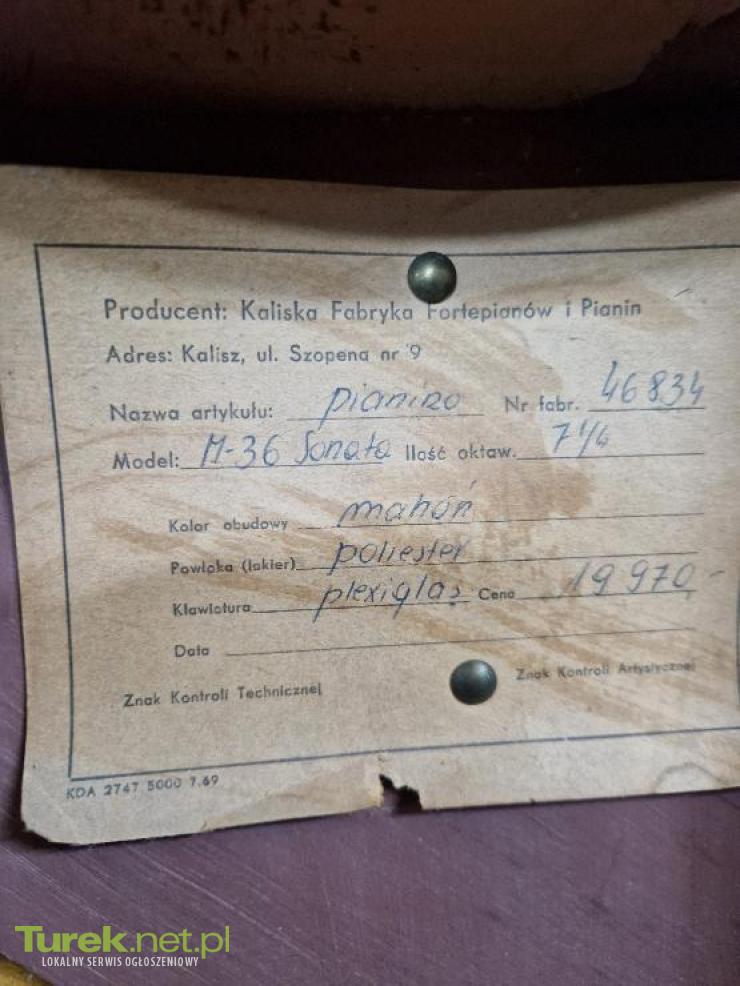 Producent: Kaliska Fabryka Fortepianów i Pianin
Adres: Kalisz, ul. Szopena nr 9
Nazwa artykułu: pianino Nr fabr. 46834
Model: M-36 Sonata Ilość oktaw. 7 1/4
Kolor obudowy mahoń
Powłoka (lakier) poliester
Klawiatura plexiglas Cena 19 970,-
Data
Znak Kontroli Technicznej Znak Kontroli Artystycznej
KDA 2747 5000 7.69
Turek.net.pl
LOKALNY SERWIS OGŁOSZENIOWY